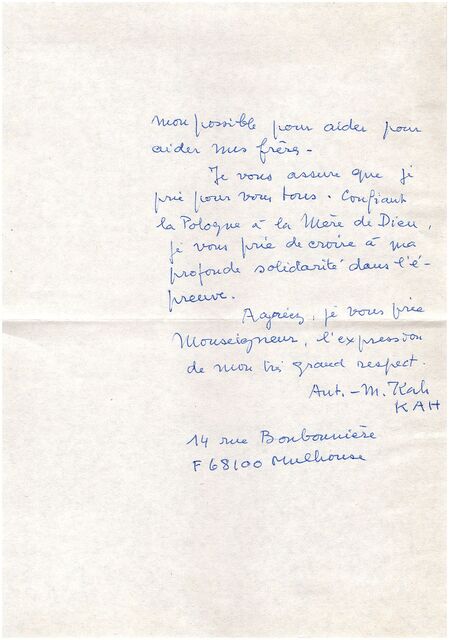 mon possible pour aider pour
aider mes frères.
Je vous assure que je
prie pour vous tous. Confiant
la Pologne à la Mère de Dieu,
je vous prie de croire à ma
profonde solidarité dans l'é-
preuve.
Agréez, je vous prie
Monseigneur, l'expression
de mon très grand respect.
Ant.-M. Kah
KAH
14 rue Bonbonnière
F 68100 Mulhouse